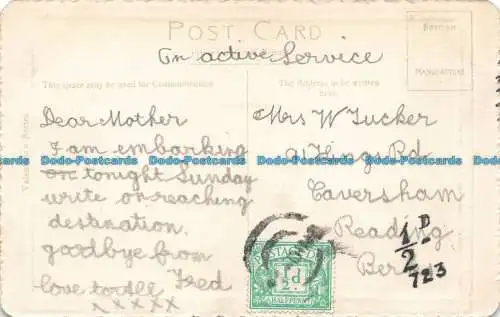 POST CARD
On active Service
BRITISH
MANUFACTURE
This space may be used for Communication
The Address to be written
here.
Dear Mother
I am embarking
on tonight Sunday
write on reaching
destination.
goodbye from
Fred
love to all
x x x x x
Mrs W Tucker
Kings Rd
Caversham
Reading
Berks
1/2 D
723
POSTAGE
½d
HALFPENNY
Dodo-Postcards Dodo-Postcards Dodo-Postcards Dodo-Postcards